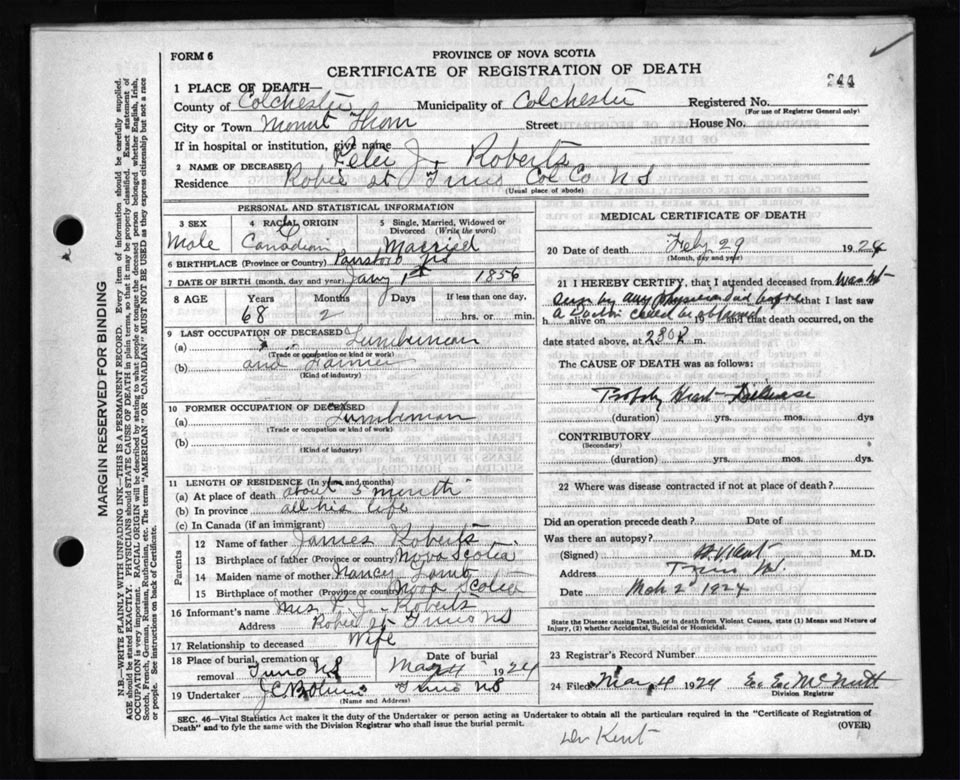 FORM 6
PROVINCE OF NOVA SCOTIA
CERTIFICATE OF REGISTRATION OF DEATH
244
1 PLACE OF DEATH—
County of Colchester Municipality of Colchester Registered No.
(For use of Registrar General only)
City or Town Mount Thom Street House No.
If in hospital or institution, give name
2 NAME OF DECEASED Peter J. Roberts
Residence Robie st Truro Col Co NS
(Usual place of abode)
PERSONAL AND STATISTICAL INFORMATION
3 SEX
Male
4 RACIAL ORIGIN
Canadian
5 Single, Married, Widowed or Divorced (Write the word)
Married
6 BIRTHPLACE (Province or Country) NS
7 DATE OF BIRTH (month, day and year) Jany 1st 1856
8 AGE Years Months Days If less than one day,
68 2 hrs. or min.
9 LAST OCCUPATION OF DECEASED
(a) Lumberman
(Trade or occupation or kind or work)
(b) and Farmer
(Kind of industry)
10 FORMER OCCUPATION OF DECEASED
(a) Lumberman
(Trade or occupation or kind of work)
(b)
(Kind of industry)
11 LENGTH OF RESIDENCE (In years and months)
(a) At place of death about 5 month
(b) In province all his life
(c) In Canada (if an immigrant)
Parents
12 Name of father James Roberts
13 Birthplace of father (Province or country) Nova Scotia
14 Maiden name of mother Nancy Lamb
15 Birthplace of mother (Province or country) Nova Scotia
16 Informant's name Mrs P. J. Roberts
Address Robie st Truro NS
17 Relationship to deceased Wife
18 Place of burial, cremation or removal Truro NS
Date of burial
Mar 4 1924
19 Undertaker Truro NS
(Name and Address)
MEDICAL CERTIFICATE OF DEATH
20 Date of death Feby 29 1924
(Month, day and year)
21 I HEREBY CERTIFY, that I attended deceased from Was not
seen by any physician before that I last saw
h alive on a Doctor could be obtained 19 and that death occurred, on
date stated above, at 230 P m.
The CAUSE OF DEATH was as follows:
Probably Heart Disease
(duration) yrs. mos. dys
CONTRIBUTORY
(Secondary)
(duration) yrs. mos. dys.
22 Where was disease contracted if not at place of death?
Did an operation precede death? Date of
Was there an autopsy?
(Signed) H.V. Kent M.D.
Address Truro NS.
Date Mch 2 1924
State the Disease causing Death, or in death from Violent Causes, state (1) Means and Nature of Injury, (2) whether Accidental, Suicidal or Homicidal.
23 Registrar's Record Number
24 Filed Mar 4 1924 McNutt
Division Registrar
SEC. 46—Vital Statistics Act makes it the duty of the Undertaker or person acting as Undertaker to obtain all the particulars required in the "Certificate of Registration of
Death" and to fyle the same with the Division Registrar who shall issue the burial permit. (OVER)
Dr Kent
MARGIN RESERVED FOR BINDING
N.B.—WRITE PLAINLY WITH UNFADING INK—THIS IS A PERMANENT RECORD. Every item of information should be carefully supplied.
AGE should be stated EXACTLY. PHYSICIANS should STATE CAUSE OF DEATH in plain terms, so that it may be properly classified. Exact statement of
OCCUPATION is very important. RACIAL ORIGIN will be described by stating to what race or tongue the deceased person belonged whether English, Irish,
Scotch, French, German, Russian, Ruthenian, etc. The terms "AMERICAN" OR "CANADIAN" MUST NOT BE USED as they express citizenship but not a race
or people. See instructions on back of Certificate.